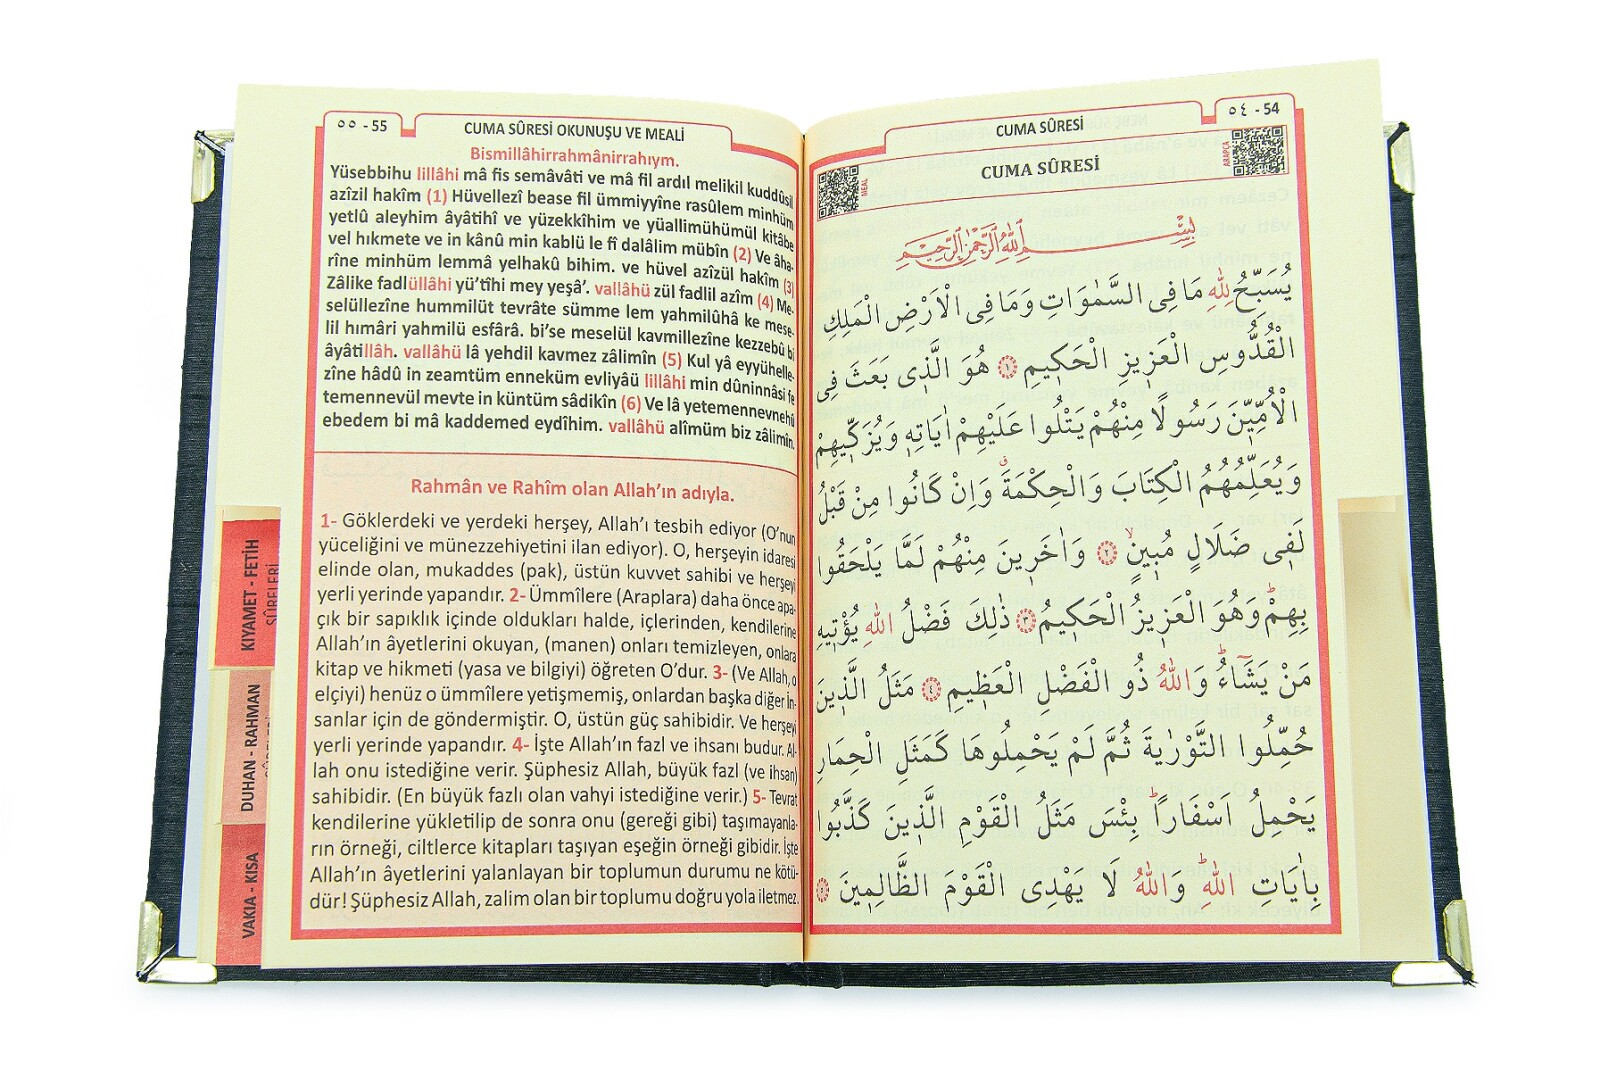 ٥٥ - 55
CUMA SÛRESİ OKUNUŞU VE MEALİ
Bismillâhirrahmânirrahıym.
Yüsebbihu lillâhi mâ fis semâvâti ve mâ fil ardıl melikil kuddûsil
azîzil hakîm (1) Hüvellezî bease fil ümmiyyîne rasûlem minhüm
yetlû aleyhim âyâtihî ve yüzekkîhim ve yüallimühümül kitâbe
vel hıkmete ve in kânû min kablü le fî dalâlim mübîn (2) Ve âha-
rîne minhüm lemmâ yelhakû bihim. ve hüvel azîzül hakîm (3)
Zâlike fadlüllâhi yü'tîhi mey yeşâ'. vallâhü zül fadlil azîm (4) Me-
selüllezîne hummilüt tevrâte sümme lem yahmilûhâ ke mese-
lil hımâri yahmilü esfârâ. bi'se meselül kavmillezîne kezzebû bi
âyâtillâh. vallâhü lâ yehdil kavmez zâlimîn (5) Kul yâ eyyühelle-
zîne hâdû in zeamtüm enneküm evliyâü lillâhi min dûninnâsi fe
temennevül mevte in küntüm sâdikîn (6) Ve lâ yetemennevnehû
ebedem bi mâ kaddemed eydîhim. vallâhü alîmüm biz zâlimîn.
Rahmân ve Rahîm olan Allah'ın adıyla.
1- Göklerdeki ve yerdeki herşey, Allah'ı tesbih ediyor (O'nun
yüceliğini ve münezzehiyetini ilan ediyor). O, herşeyin idaresi
elinde olan, mukaddes (pak), üstün kuvvet sahibi ve herşeyi
yerli yerinde yapandır. 2- Ümmîlere (Araplara) daha önce apa-
çık bir sapıklık içinde oldukları halde, içlerinden, kendilerine
Allah'ın âyetlerini okuyan, (manen) onları temizleyen, onlara
kitap ve hikmeti (yasa ve bilgiyi) öğreten O'dur. 3- (Ve Allah, o
elçiyi) henüz o ümmîlere yetişmemiş, onlardan başka diğer in-
sanlar için de göndermiştir. O, üstün güç sahibidir. Ve herşeyi
yerli yerinde yapandır. 4- İşte Allah'ın fazl ve ihsanı budur. Al-
lah onu istediğine verir. Şüphesiz Allah, büyük fazl (ve ihsan)
sahibidir. (En büyük fazlı olan vahyi istediğine verir.) 5- Tevrat
kendilerine yükletilip de sonra onu (gereği gibi) taşımayanla-
rın örneği, ciltlerce kitapları taşıyan eşeğin örneği gibidir. İşte
Allah'ın âyetlerini yalanlayan bir toplumun durumu ne kötü-
dür! Şüphesiz Allah, zalim olan bir toplumu doğru yola iletmez.
KIYAMET - FETİH
SÛRELERİ
DUHAN - RAHMAN
VAKIA - KISA
CUMA SÛRESİ
٥٤ - 54
MEAL
CUMA SÛRESİ
ARAPÇA
بِسْمِ اللّٰهِ الرَّحْمٰنِ الرَّحِيمِ
يُسَبِّحُ لِلّٰهِ مَا فِى السَّمٰوَاتِ وَمَا فِى الْاَرْضِ الْمَلِكِ
الْقُدُّوسِ الْعَزِيزِ الْحَكِيمِ ﴿١﴾ هُوَ الَّذِى بَعَثَ فِى
الْاُمِّيّنَ رَسُولًا مِنْهُمْ يَتْلُوا عَلَيْهِمْ اٰيَاتِهِ وَيُزَكِّيهِمْ
وَيُعَلِّمُهُمُ الْكِتَابَ وَالْحِكْمَةَ وَاِنْ كَانُوا مِنْ قَبْلُ
لَفِى ضَلَالٍ مُبِينٍ ﴿٢﴾ وَاٰخَرِينَ مِنْهُمْ لَمَّا يَلْحَقُوا
بِهِمْ وَهُوَ الْعَزِيزُ الْحَكِيمُ ﴿٣﴾ ذٰلِكَ فَضْلُ اللّٰهِ يُؤْتِيهِ
مَنْ يَشَاءُ وَاللّٰهُ ذُو الْفَضْلِ الْعَظِيمِ ﴿٤﴾ مَثَلُ الَّذِينَ
حُمِّلُوا التَّوْرٰيةَ ثُمَّ لَمْ يَحْمِلُوهَا كَمَثَلِ الْحِمَارِ
يَحْمِلُ اَسْفَارًا بِئْسَ مَثَلُ الْقَوْمِ الَّذِينَ كَذَّبُوا
بِاٰيَاتِ اللّٰهِ وَاللّٰهُ لَا يَهْدِى الْقَوْمَ الظَّالِمِينَ ﴿٥﴾